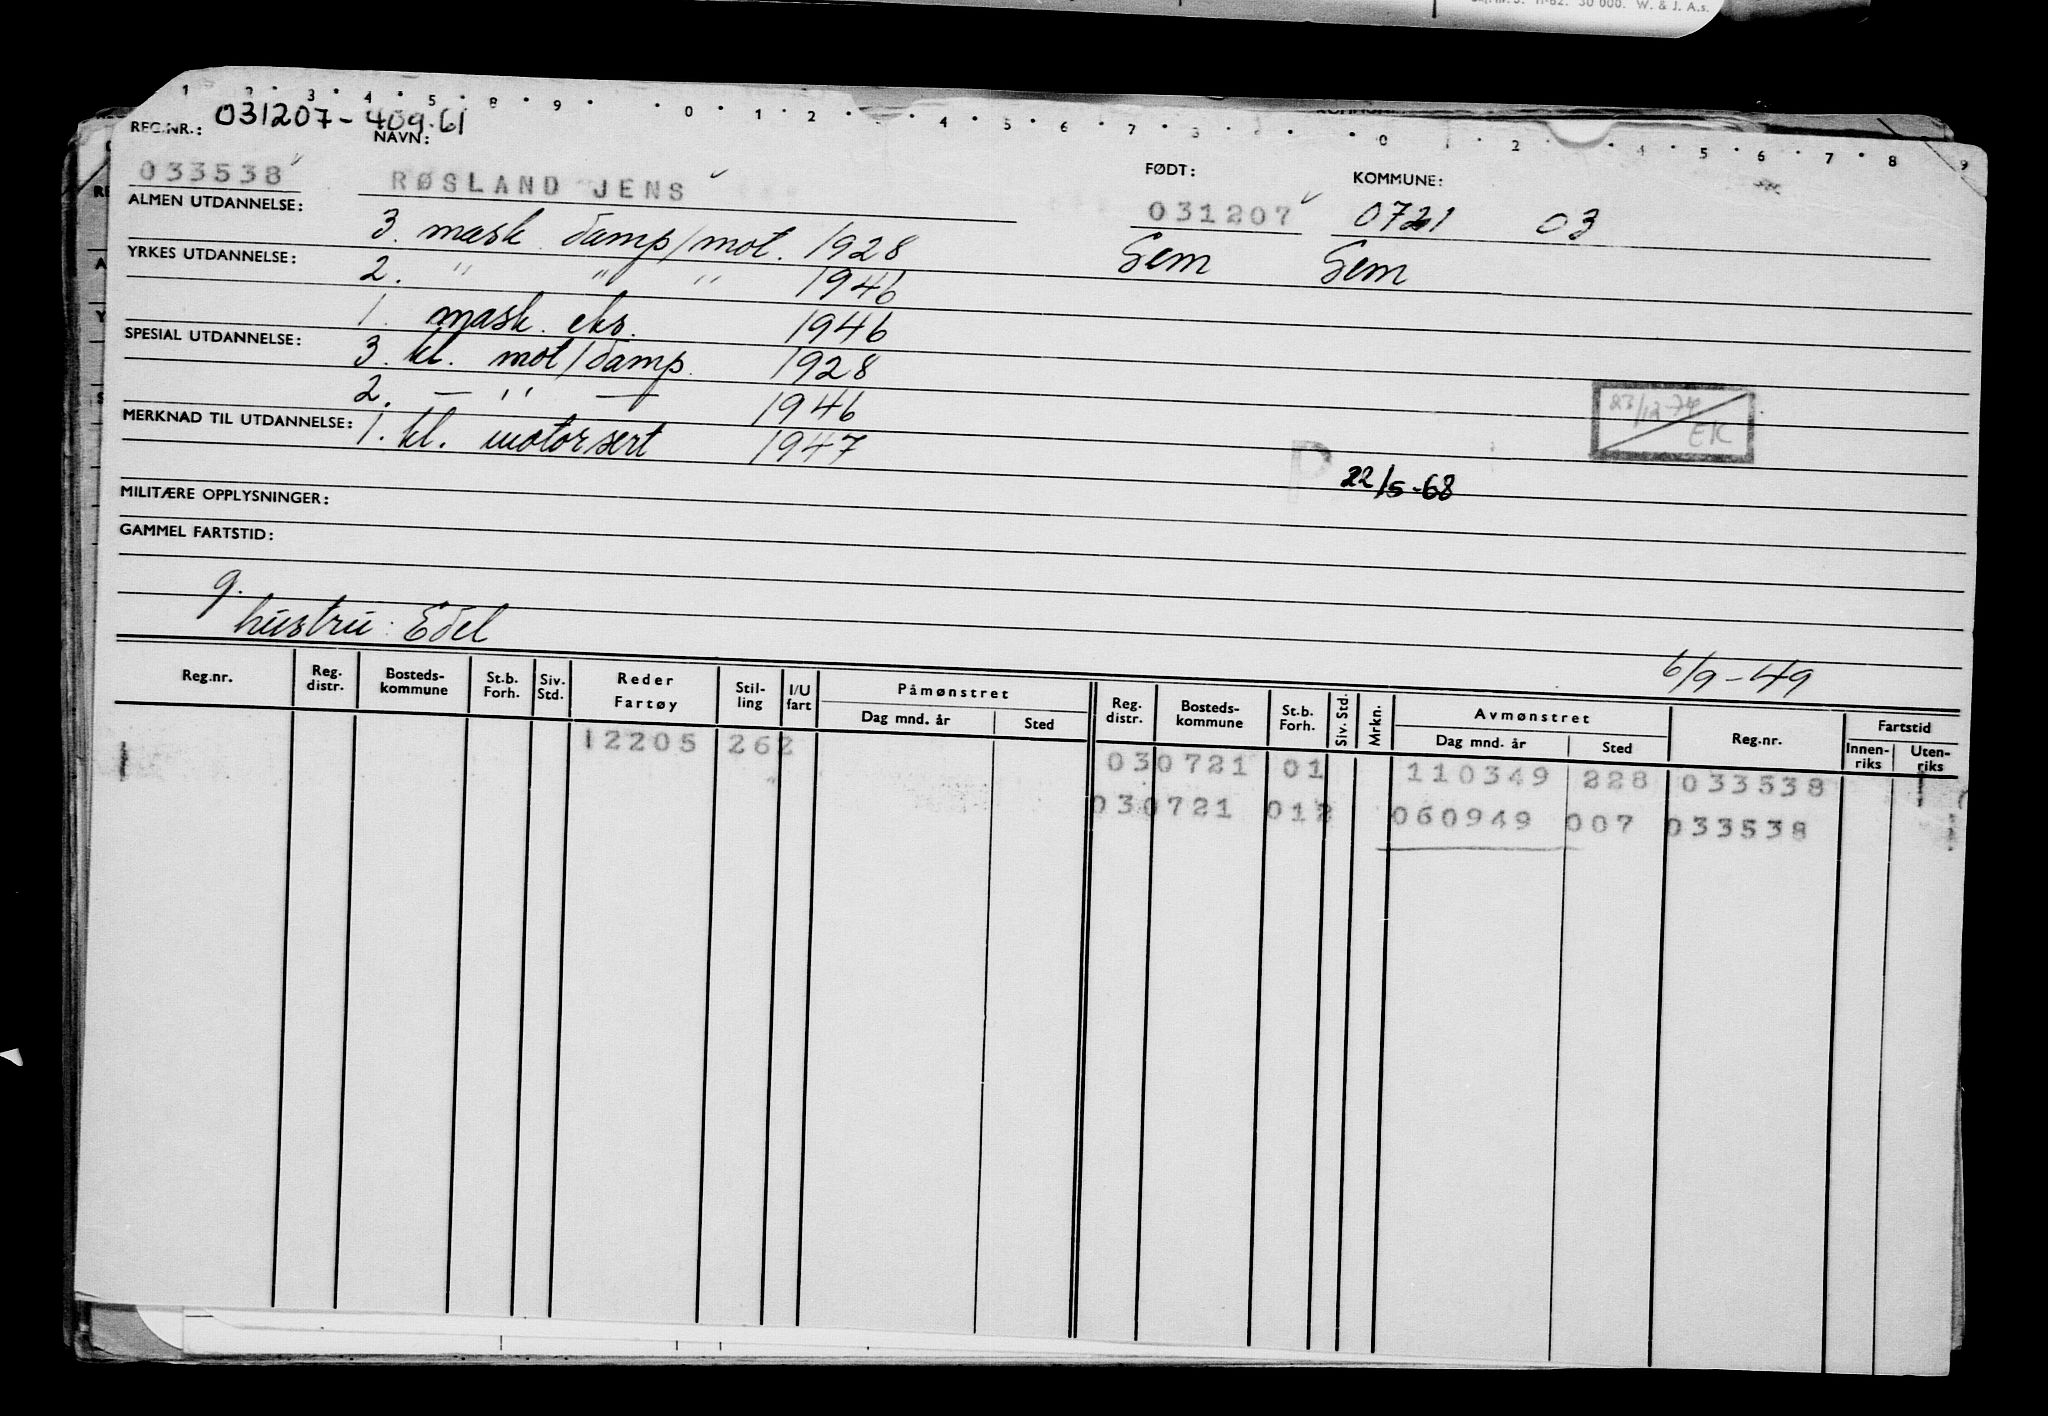 11-62. 30 000. W. & J. A.s.
1 2 3 4 5 8 9 0 1 2 3 4 5 6 7 3 2 0 1 2 3 4 5 6 7 8 9
REG.NR.: 031207-409.61
NAVN:
FØDT:
KOMMUNE:
033538 RØSLAND JENS 031207 0721 03
ALMEN UTDANNELSE: 3. mask damp/mot. 1928 Sem Sem
YRKES UTDANNELSE: 2. " " " 1946
1. mask. eks. 1946
SPESIAL UTDANNELSE: 3. kl. mot/damp. 1928
2. — " — 1946
MERKNAD TIL UTDANNELSE: 1. kl. motorsert 1947
23/12-74
EK
P 22/5-68
MILITÆRE OPPLYSNINGER:
GAMMEL FARTSTID:
g.
hustru: Edel
6/9-49
Reg.nr. Reg. distr. Bosteds-kommune St.b. Forh. Siv. Std. Reder Fartøy Stil-ling I/U fart Påmønstret Dag mnd. år Sted Reg. distr. Bosteds-kommune St.b. Forh. Siv. Std. Mrkn. Avmønstret Dag mnd. år Sted Reg.nr. Fartstid Innen-riks Uten-riks
12205 262 030721 01 110349 228 033538
030721 012 060949 007 033538